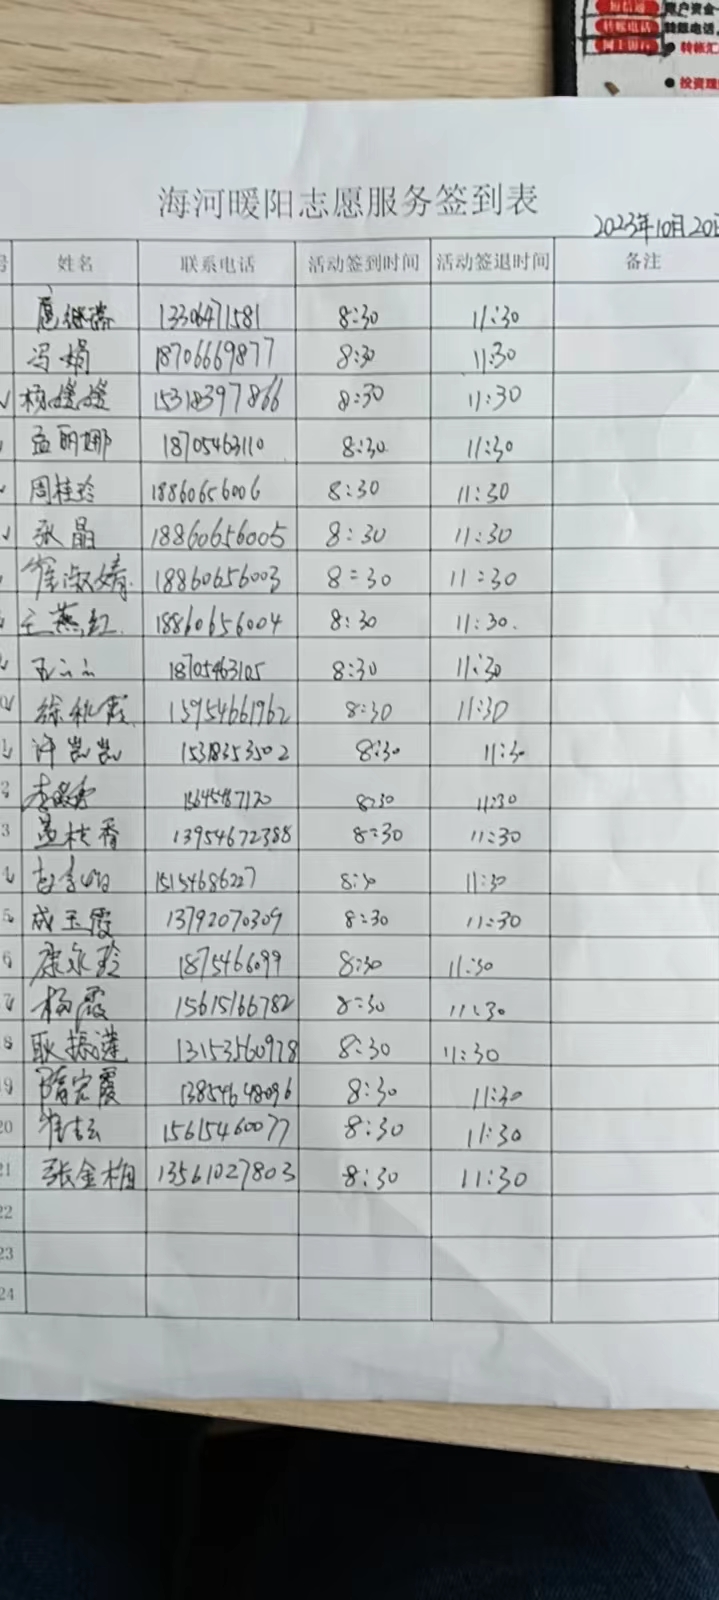 短信通 账户资金
转账电话 转账电话
网上银行 转帐汇
投资理
海河暖阳志愿服务签到表
2023年10月20日
号 姓名 联系电话 活动签到时间 活动签退时间 备注
扈继蕊 13306471581 8:30 11:30
冯娟 18706669877 8:30 11:30
杨媛媛 15318397866 8:30 11:30
孟丽娜 18705463110 8:30 11:30
周桂玲 18860656006 8:30 11:30
张晶 18860656005 8:30 11:30
崔淑婧 18860656003 8:30 11:30
王燕红 18860656004 8:30 11:30
18705463105 8:30 11:30
徐秋霞 15954661962 8:30 11:30
许凯凯 15318353502 8:30 11:30
2 8:30 11:30
3 黄桂香 13954672388 8:30 11:30
15154686227 8:30 11:30
5 成玉霞 13792070309 8:30 11:30
6 康永玲 1875466099 8:30 11:30
7 杨霞 15615166782 8:30 11:30
8 耿振莲 13153560978 8:30 11:30
9 隋宏霞 13854648096 8:30 11:30
20 15615460077 8:30 11:30
21 张金梅 13561027803 8:30 11:30
22
23
24